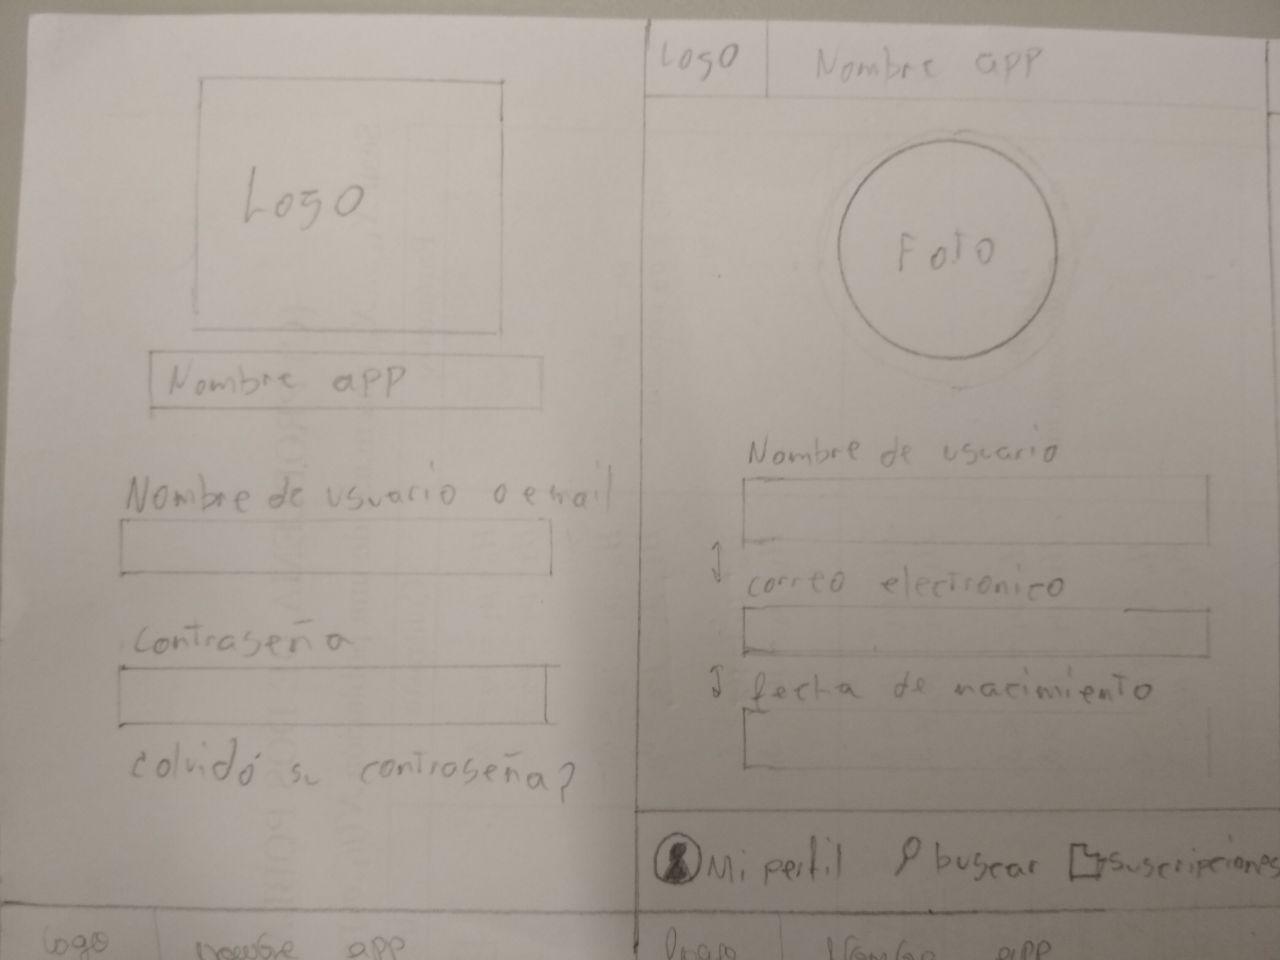 Logo
Nombre app
Nombre de usuario o email
contraseña
¿olvidó su contraseña?
Logo Nombre app
Foto
Nombre de usuario
correo electronico
fecha de nacimiento
Mi perfil buscar suscripciones
logo nombre app
logo Nombre app